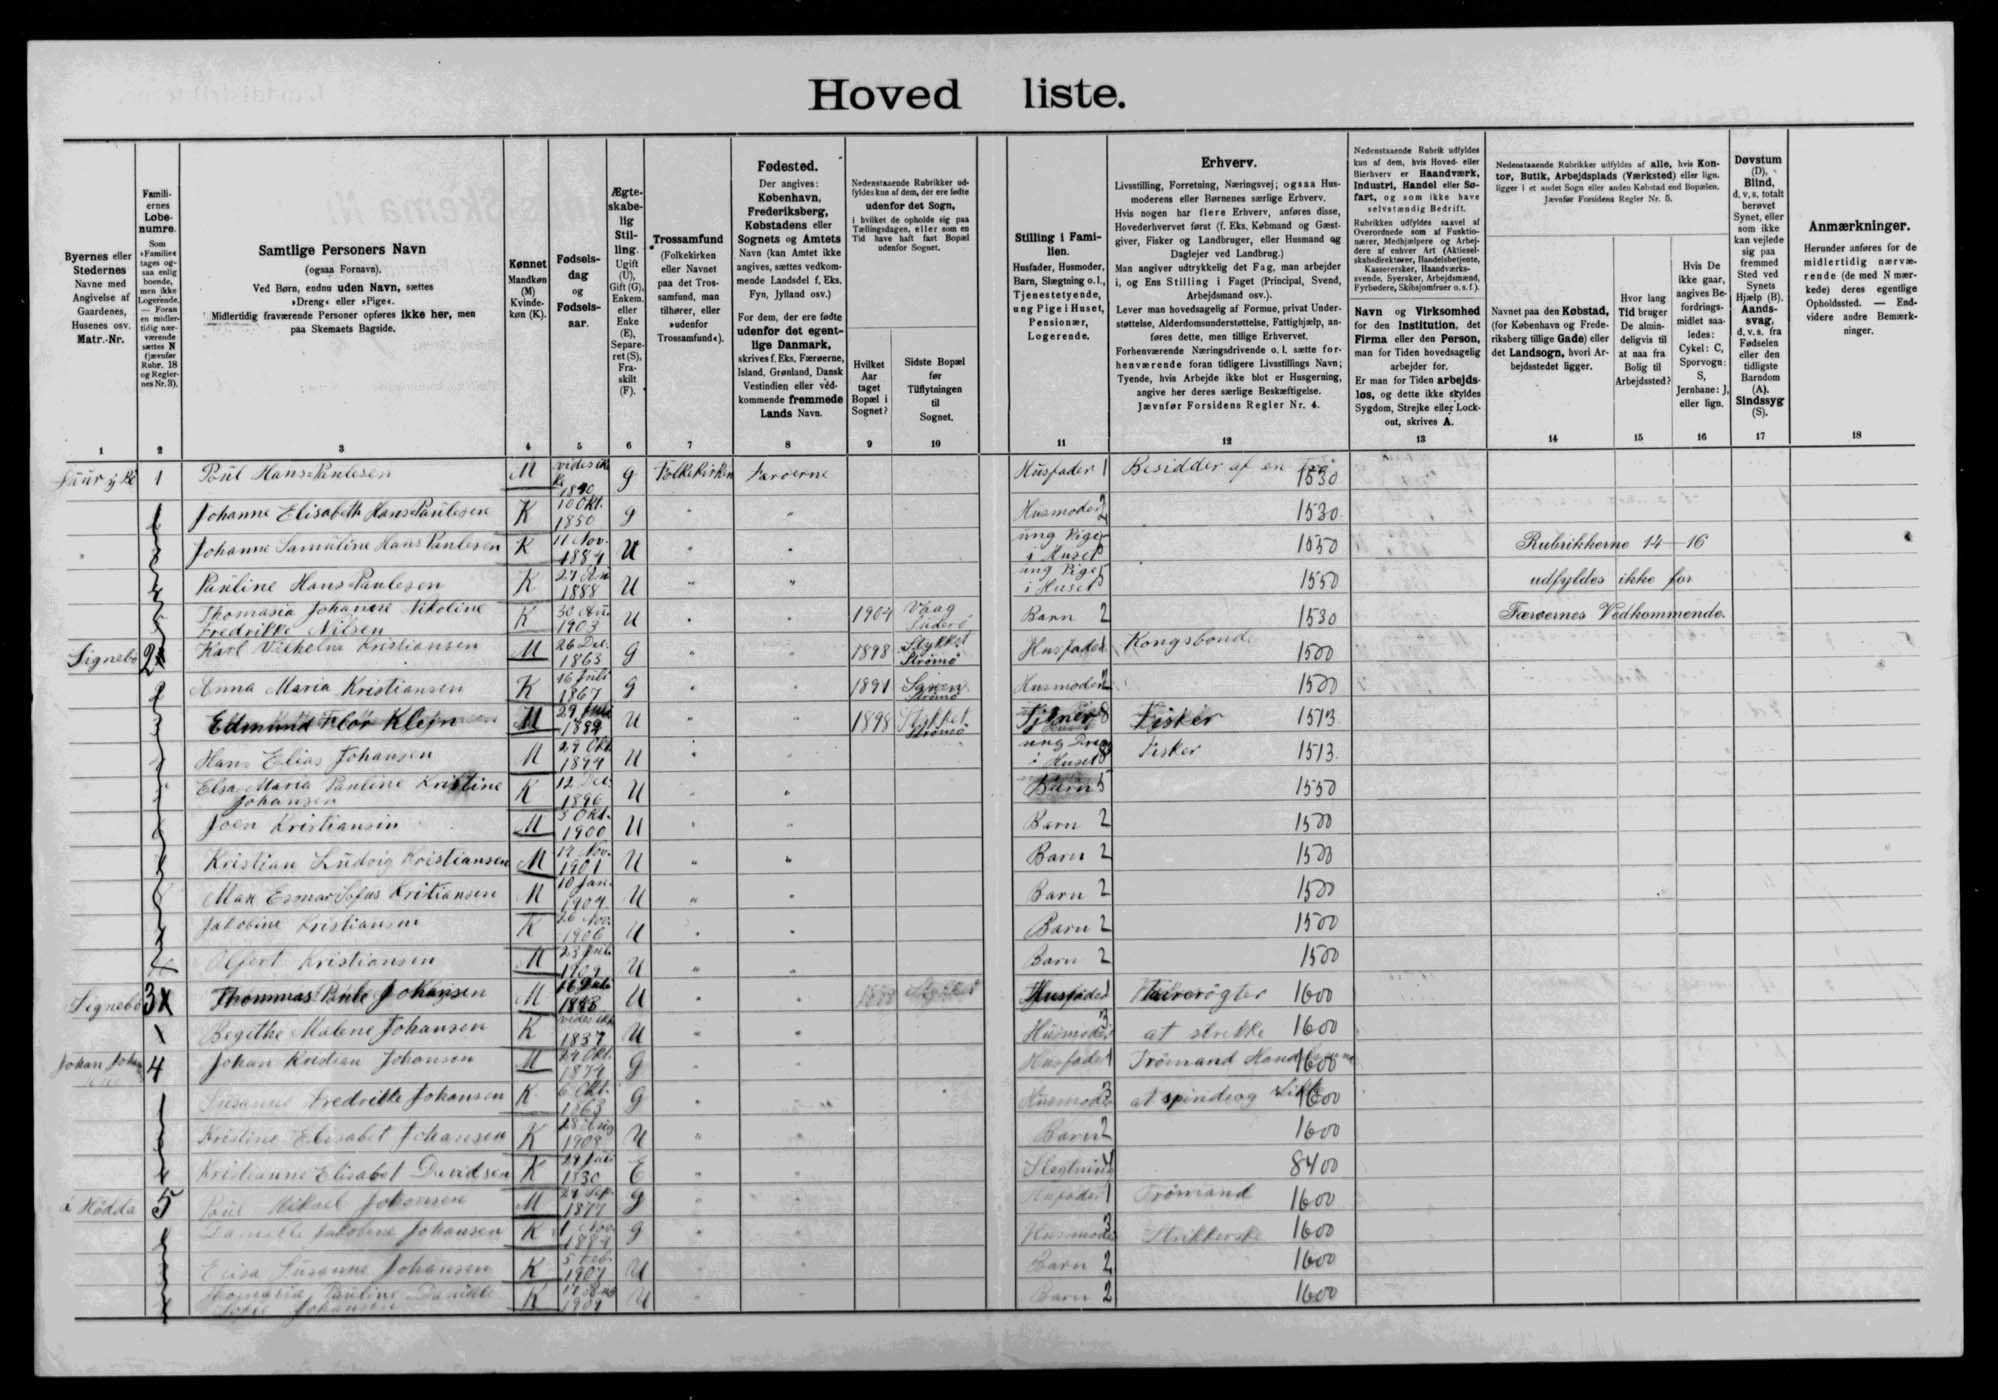 Hoved liste.
Byernes eller
Stedernes
Navne med
Angivelse af
Gaardenes,
Husenes osv.
Matr.-Nr.
Famili-
ernes
Løbe-
numre.
Som
»Familie«
tages og-
saa enlig
boende,
men ikke
Logerende.
— Foran
en midler-
tidig nær-
værende
sættes N
(jævnfør
Rubr. 18
og Regler-
nes Nr. 3).
Samtlige Personers Navn
(ogsaa Fornavn).
Ved Børn, endnu uden Navn, sættes
»Dreng« eller »Pige«.
Midlertidig fraværende Personer opføres ikke her, men
paa Skemaets Bagside.
Kønnet
Mandkøn
(M)
Kvinde-
køn (K).
Fødsels-
dag
og
Fødsels-
aar.
Ægte-
skabe-
lig
Stil-
ling.
Ugift
(U),
Gift (G),
Enkem.
eller
Enke
(E),
Separe-
ret (S),
Fra-
skilt
(F).
Trossamfund
(Folkekirken
eller Navnet
paa det Tros-
samfund, man
tilhører, eller
»udenfor
Trossamfund«).
Fødested.
Der angives:
København,
Frederiksberg,
Købstadens eller
Sognets og Amtets
Navn (kan Amtet ikke
angives, sættes vedkom-
mende Landsdel f. Eks.
Fyn, Jylland osv.)
For dem, der ere fødte
udenfor det egent-
lige Danmark,
skrives f. Eks. Færøerne,
Island, Grønland, Dansk
Vestindien eller ved-
kommende fremmede
Lands Navn.
Nedenstaaende Rubrikker ud-
fyldes kun af dem, der ere fødte
udenfor det Sogn,
i hvilket de opholde sig paa
Tællingsdagen, eller som en
Tid have haft fast Bopæl
udenfor Sognet.
Hvilket
Aar
taget
Bopæl i
Sognet?
Sidste Bopæl
før
Tilflytningen
til
Sognet.
Stilling i Fami-
lien.
Husfader, Husmoder,
Barn, Slægtning o. l.,
Tjenestetyende,
ung Pige i Huset,
Pensionær,
Logerende.
Erhverv.
Livsstilling, Forretning, Næringsvej; ogsaa Hus-
moderens eller Børnenes særlige Erhverv.
Hvis nogen har flere Erhverv, anføres disse,
Hovederhvervet først (f. Eks. Købmand og Gæst-
giver, Fisker og Landbruger, eller Husmand og
Daglejer ved Landbrug.)
Man angiver udtrykkelig det Fag, man arbejder
i, og Ens Stilling i Faget (Principal, Svend,
Arbejdsmand osv.).
Lever man hovedsagelig af Formue, privat Under-
støttelse, Alderdomsunderstøttelse, Fattighjælp, an-
føres dette, men tillige Erhvervet.
Forhenværende Næringsdrivende o. l. sætte for-
henværende foran tidligere Livsstillings Navn;
Tyende, hvis Arbejde ikke blot er Husgerning,
angive her deres særlige Beskæftigelse.
Jævnfør Forsidens Regler Nr. 4.
Nedenstaaende Rubrik udfyldes
kun af dem, hvis Hoved- eller
Bierhverv er Haandværk,
Industri, Handel eller Sø-
fart, og som ikke have
selvstændig Bedrift.
Rubrikken udfyldes saavel af
Overordnede som af Funktio-
nærer, Medhjælpere og Arbej-
dere af enhver Art (Aktiesel-
skabsdirektører, Handelsbetjente,
Kasserersker, Haandværks-
svende, Syersker, Arbejdsmænd,
Fyrbødere, Skibsjomfruer o. s. f.).
Navn og Virksomhed
for den Institution, det
Firma eller den Person,
man for Tiden hovedsagelig
arbejder for.
Er man for Tiden arbejds-
løs, og dette ikke skyldes
Sygdom, Strejke eller Lock-
out, skrives A.
Nedenstaaende Rubrikker udfyldes af alle, hvis Kon-
tor, Butik, Arbejdsplads (Værksted) eller lign.
ligger i et andet Sogn eller anden Købstad end Bopælen.
Jævnfør Forsidens Regler Nr. 5.
Navnet paa den Købstad,
(for København og Frede-
riksberg tillige Gade) eller
det Landsogn, hvori Ar-
bejdsstedet ligger.
Hvor lang
Tid bruger
De almin-
deligvis til
at naa fra
Bolig til
Arbejdssted?
Hvis De
ikke gaar,
angives Be-
fordrings-
midlet saa-
ledes:
Cykel: C,
Sporvogn:
S,
Jernbane: J,
eller lign.
Døvstum
(D),
Blind,
d. v. s. totalt
berøvet
Synet, eller
som ikke
kan vejlede
sig paa
fremmed
Sted ved
Synets
Hjælp (B).
Aands-
svag,
d. v. s. fra
Fødselen
eller den
tidligste
Barndom
(A).
Sindssyg
(S).
Anmærkninger.
Herunder anføres for de
midlertidig nærvæ-
rende (de med N mær-
kede) deres egentlige
Opholdssted. — End-
videre andre Bemærk-
ninger.
1 2 3 4 5 6 7 8 9 10 11 12 13 14 15 16 17 18
1 Poul Hans Paulesen M g Folkekirken Færøerne Husfader 1 Besidder af en 1530
Johanne Elisabeth Hans Paulesen K 10 Okt. 1850 g " " Husmoder 2 1530
Johanne Samuline Hans Paulesen K 11 Nov. 1884 U " " ung Piger i Huset 5 1550 Rubrikkerne 14-16
Pauline Hans Paulesen K 1888 U " " ung Piger i Huset 5 1550 udfyldes ikke for
Thomasia Johanne Nikoline Fredrikke Nilsen K 30 1903 U " " 1904 Vaag Suderø Barn 2 1530 Færøernes Vedkommende.
Signebø 2 Karl Vilhelm Kristiansen M 26 Dec. 1863 g " " 1898 Strømø Husfader 1 Kongsbonde 1500
Anna Maria Kristiansen K 16 Juli 1867 g " " 1891 Strømø Husmoder 2 1500
3 Edmund Flor Klejn M 29 U " " 1898 Strømø Tjener 8 Fisker 1513
Hans Elias Johansen M 27 Okt. 1894 U " " ung i Huset 8 Fisker 1513
Elsa Maria Pauline Kristine Johansen K 12 Dec. 1896 U " " Barn 5 1550
Joen Kristiansen M 5 Okt. 1900 U " " Barn 2 1500
Kristian Ludvig Kristiansen M 19 Nov. 1901 U " " Barn 2 1500
Max Esmar Kristiansen M 10 Jan. 1904 U " " Barn 2 1500
Jakobine Kristiansen K 26 Nov. 1906 U " " Barn 2 1500
Kristiansen M 23 Juli 1909 U " " Barn 2 1500
Signebø 3 Thommas Johansen M U " " Husfader 1 1600
Malene Johansen K 1837 U " " Husmoder 3 at strikke 1600
4 Johan Kristian Johansen M 29 Okt. 1874 g " " Husfader 1 Trømand 1600
Susanne Fredrikke Johansen K 6 Okt. 1863 g " " Husmoder 3 at spinde og 1600
Kristine Elisabet Johansen K 28 Aug 1908 U " " Barn 2 1600
Kristianne Elisabet Davidsen K 1830 E " " Slegtning 4 8400
5 Poul Mikael Johansen M 29 Sep. 1877 g " " 1 Trømand 1600
Jakobine Johansen K 1 Nov. 1884 g " " Husmoder 3 Strikkerske 1600
Elisa Susanne Johansen K 5 Feb. 1907 U " " Barn 2 1600
Pauline Johansen K 1909 U " " Barn 2 1600